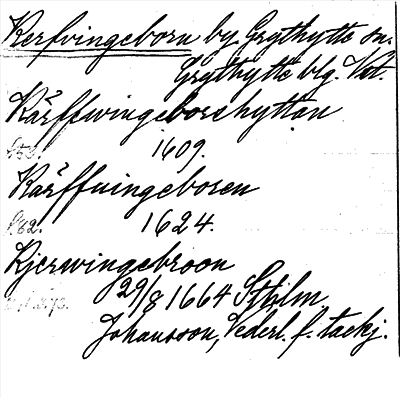 Kerfvingeborn by Grythytte sn.
Grythytte blg. Vstm.
Kärffwingeborshyttan
1609.
Kärffuingeboren
1624.
Kjerwingebroon
29/8 1664 Sthlm
Johansson, Vederl. f. tackj.